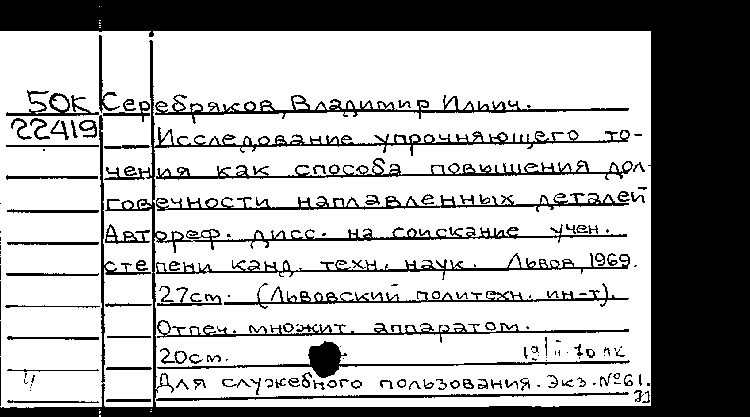 50К Серебряков, Владимир Ильич.
22419 Исследование упрочняющего то-
чения как способа повышения дол-
говечности наплавленных деталей
Автореф. дисс. на соискание учен.
степени канд. техн. наук. Львов, 1969.
27ст. (Львовский политехн. ин-т).
Отпеч. множит. аппаратом.
20см. 19/II-70 лк
Ч Для служебного пользования. Экз. №61.